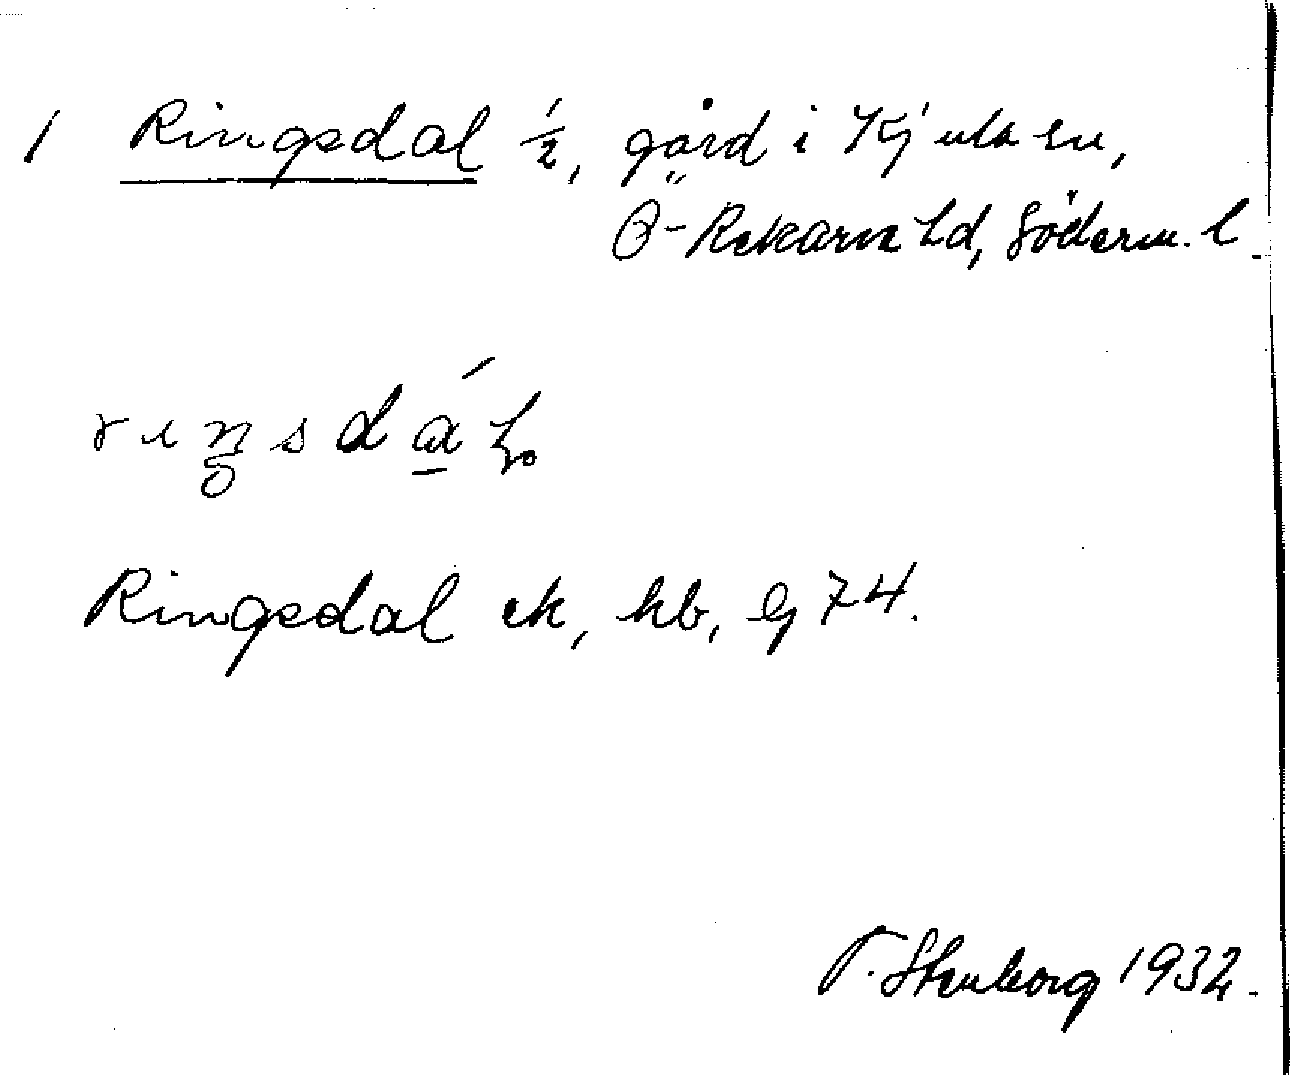 1 Ringsdal ½, gård i Kjula sn,
Ö-Rekarne hd, Söderm. l.
Ringsdal ek, hb, Gj 74.
T. Stenborg 1932.